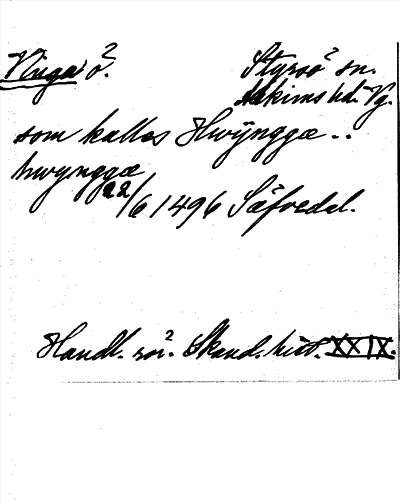 Vinga ö. Styrsö sn.
Askims hd. Vg.
som kalles Hwÿnggæ - -
hwynggæ
22/6 1496 Säfvedal.
Handl. rör. Skand. hist. XXIX.